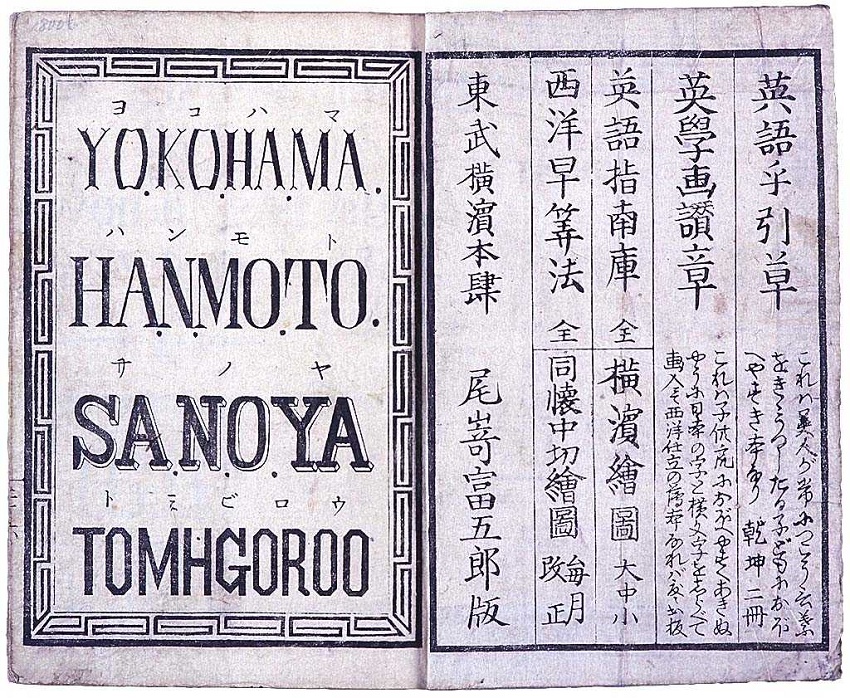 英語手引草
これハ異人が常につこう言葉
をきゝうつしたる子どもにおぼ
へやすき本なり 乾坤 二冊
英學画讃章
これハ子供衆におぼへやすくあきぬ
やうに日本の字と横文字をならべて
画入 西洋仕立の 出板
英語指南庫 全
橫濱繪圖 大中小
西洋早算法 全
同懐中切繪圖 每月改正
東武橫濱本肆 尾嵜富五郎版
ヨコハマ
YO.KO.HA.MA.
ハンモト
HA.N.MO.TO.
サノヤ
SA.NO.YA
トミビロウ
TOMHGOROO